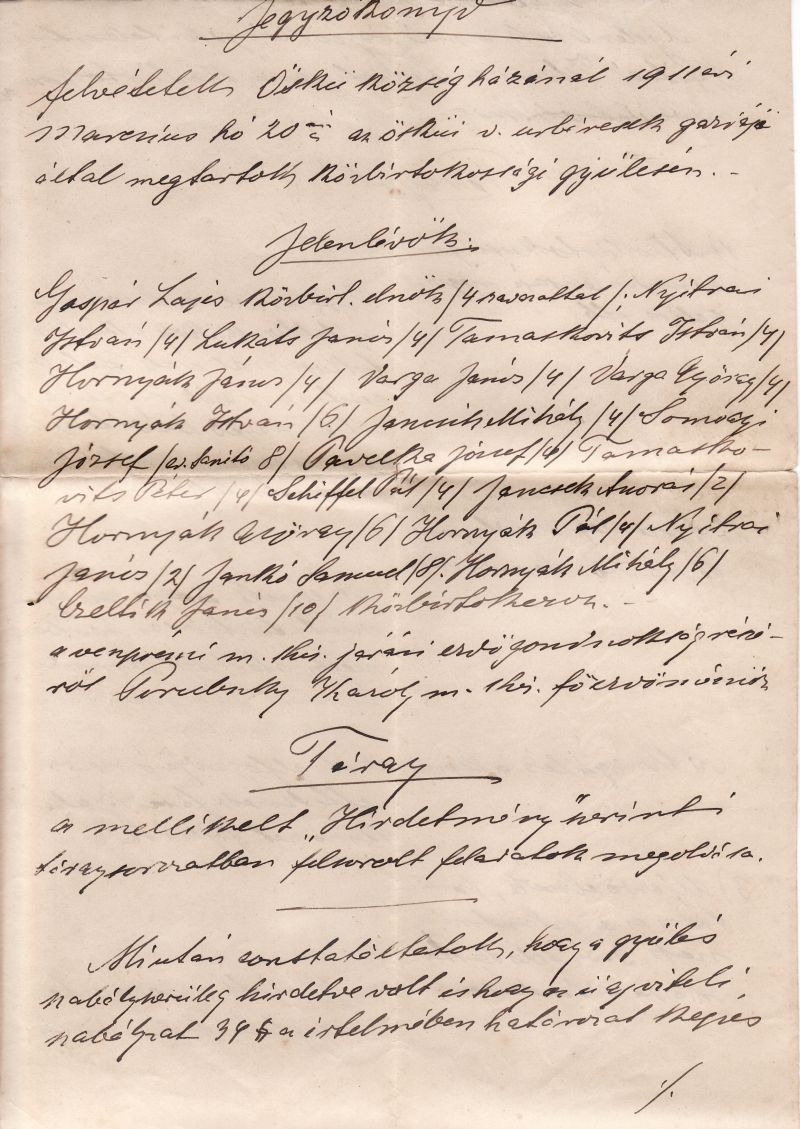 Jegyzőkönyv
felvétetett Öskü községházánál 1911 évi
Marczius hó 20 án az öskűi v. urbéresek gazdája
által megtartott közbirtokossági gyűlésen. -
Jelenlévők:
Gaspár Lajos közbirt. elnök /4 szavazattal/: Nyitrai
István /4/ Lukáts János /4/ Tamaskovits István /4/
Hornyák János /4/ Varga János /4/ Varga György /4/
Hornyák István /6/ Jancsik Mihály /4/ Somogyi
József 8/ Pavelka József /4/ Tamasko-
vits Péter /4/ Schiffel Pál /4/ Jancsek András /2/
Hornyák György /6/ Hornyák Pál /4/ Nyitrai
János /2/ Jankó Samuel /8/. Hornyák Mihály /6/
Czellik János /10/ közbirtokosok. -
a veszprémi m. kir. járási erdőgondnokság részé-
ről Porubszky Károly m. kir. főerdőmérnök
Tárgy
a mellékelt „Hirdetmény" szerinti
tárgysorozatban felsorolt feladatok megoldása.
Miután constatáltatott, hogy a gyűlés
szabályszerűleg hirdetve volt és hogy az ügyviteli
szabályzat 34 § a értelmében határozat képes
./.